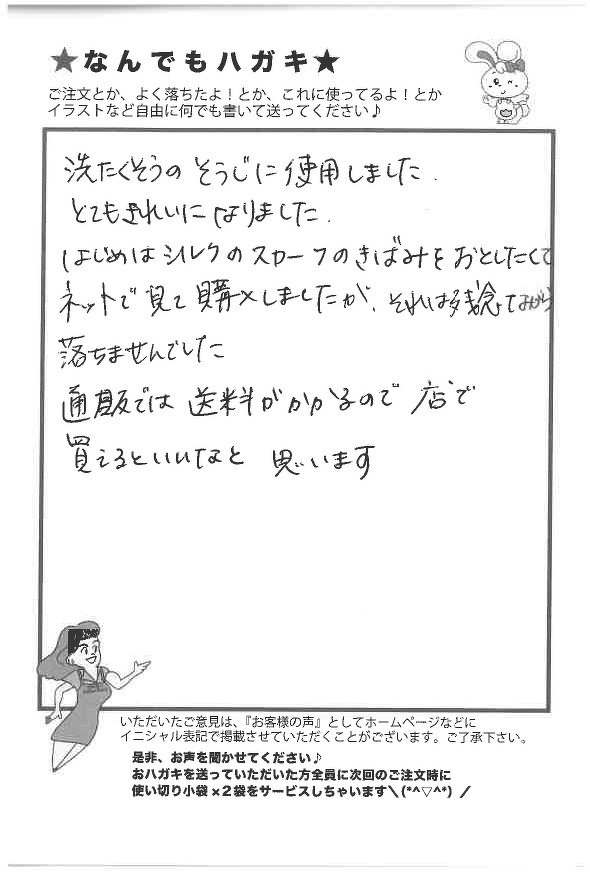 ★なんでもハガキ★
ご注文とか、よく落ちたよ！とか、これに使ってるよ！とか
イラストなど自由に何でも書いて送ってください♪
洗たくそうの そうじに使用しました.
とてもきれいになりました.
はじめはシルクのスカーフのきばみをおとしたくて
ネットで見て購入しましたが、それは残念ながら
落ちませんでした
通販では送料がかかるので店で
買えるといいなと 思います
いただいたご意見は、『お客様の声』としてホームページなどに
イニシャル表記で掲載させていただくことがございます。ご了承下さい。
是非、お声を聞かせてください♪
おハガキを送っていただいた方全員に次回のご注文時に
使い切り小袋×2袋をサービスしちゃいます＼(*^▽^*)／